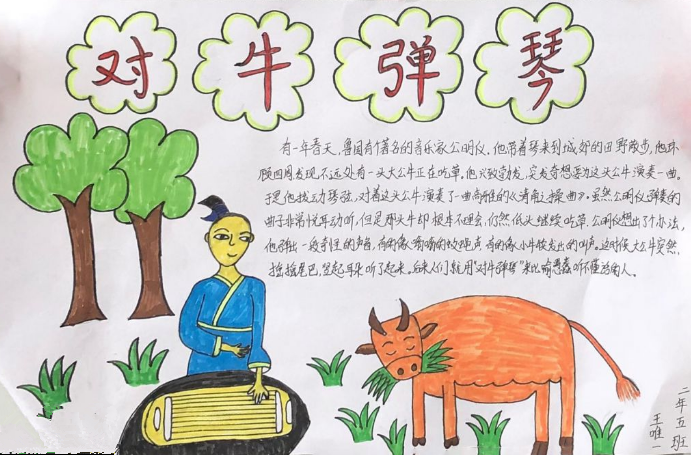 对牛弹琴
有一年春天,鲁国有个著名的音乐家公明仪。他带着琴来到城郊的田野散步,他环
顾四周发现,不远处有一头大公牛正在吃草,他兴致勃发,突发奇想要为这头公牛演奏一曲。
于是他拨动琴弦,对着这头公牛演奏了一曲高雅的《清角之操曲》。虽然公明仪弹奏的
曲子非常悦耳动听,但是那头牛却根本不理会,仍然低头继续吃草。公明仪想出了个办法,
他弹出一段奇怪的声音,有的像嗡嗡的蚊蝇声,有的像小牛仔发出的叫声。这时候大公牛突然,
摇摇尾巴,竖起耳朵听了起来。后来人们就用"对牛弹琴"来比喻愚蠢听不懂的人。
二年五班
王唯一